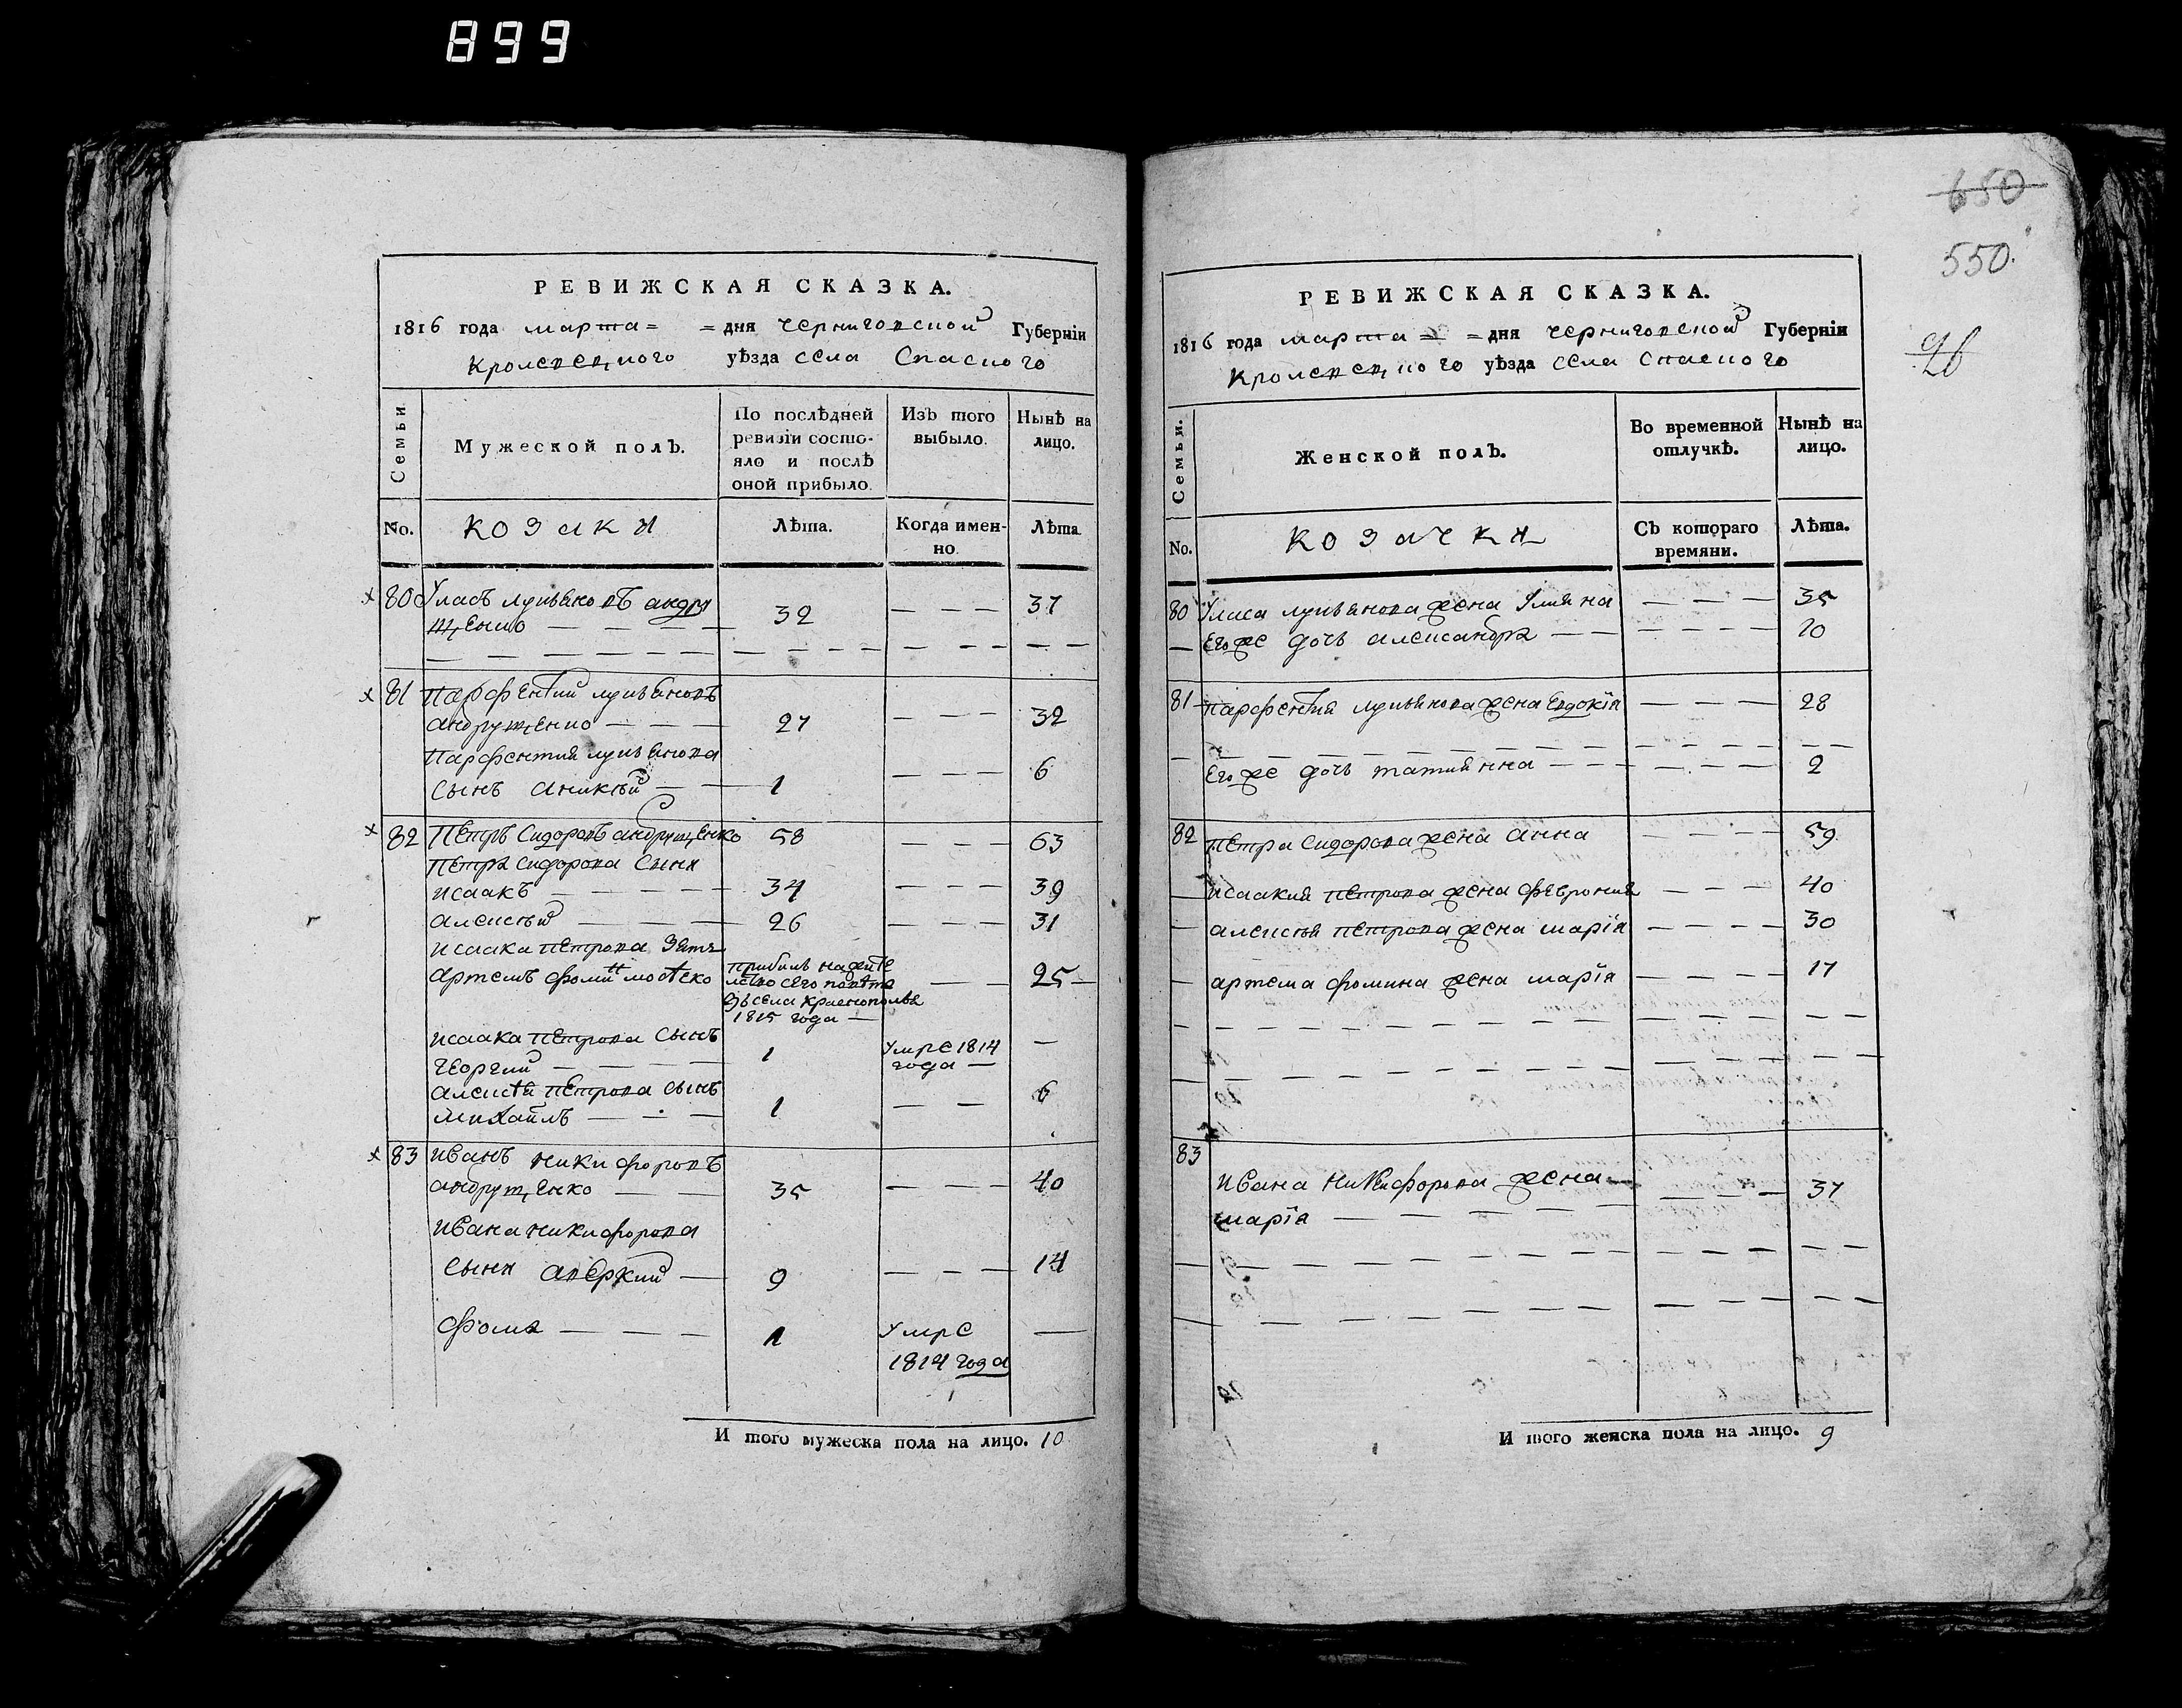 899
РЕВИЖСКАЯ СКАЗКА.
1816 года марта = = дня Черниговской Губерніи
Кролевецкого уѣзда села Спаского
Семьи
Мужеской полъ.
По послѣдней ревизіи состо-
яло и послѣ
оной прибыло.
Изъ того
выбыло.
Нынѣ на
лицо.
No.
козаки
Лѣта.
Когда имен-
но.
Лѣта.
80 Уласъ лукьяновъ андру
щенко — — — 32 — — — 37
81 Парфентий лукьяновъ
андрущенко — — — 27 — — — 32
Парфентия лукьянова
сынъ аникѣй — — 1 — — — 6
82 Петръ Сидоровъ андрущенко 58 — — — 63
Петра Сидорова сыни
исаакъ — — — 34 — — — 39
алексѣй — — — 26 — — — 31
исаака петрова зять
артемъ фоминъ 25
прибылъ на жите
лство сего повѣта
зъ села краснополья
1815 года —
исаака петрова сынъ
георгий — — — 1 Умре 1814
года — —
алексѣя петрова сынъ
михаилъ — — — 1 — — 6
83 иванъ никифоровъ
андрущенко — — 35 — — — 40
ивана никифорова
сыни аверкий — 9 — — — 14
фома — — — 1 Умре —
1814 года
И того мужеска пола на лицо. 10
650
550.
96
РЕВИЖСКАЯ СКАЗКА.
1816 года марта = = дня Черниговской Губерніи
Кролевецкого уѣзда села Спаского
Семьи.
Женской полъ.
Во временной
отлучкѣ.
Нынѣ на
лицо.
No.
козачки
Съ котораго
времяни.
Лѣта.
80 Уласа лукьянова жена Улияна — — — 35
Его же дочь александра — — — 10
81 парфентия лукьянова жена Евдокія — — — 28
Его же дочь татиянна — — — 2
82 петра Сидорова жена анна — — — 59
исаакия петрова жена феврония — — — 40
алексѣя петрова жена марія — — — 30
артема фомина жена марія — — — 17
83
ивана никифорова жена — — — 37
марія — — —
И того женска пола на лицо. 9